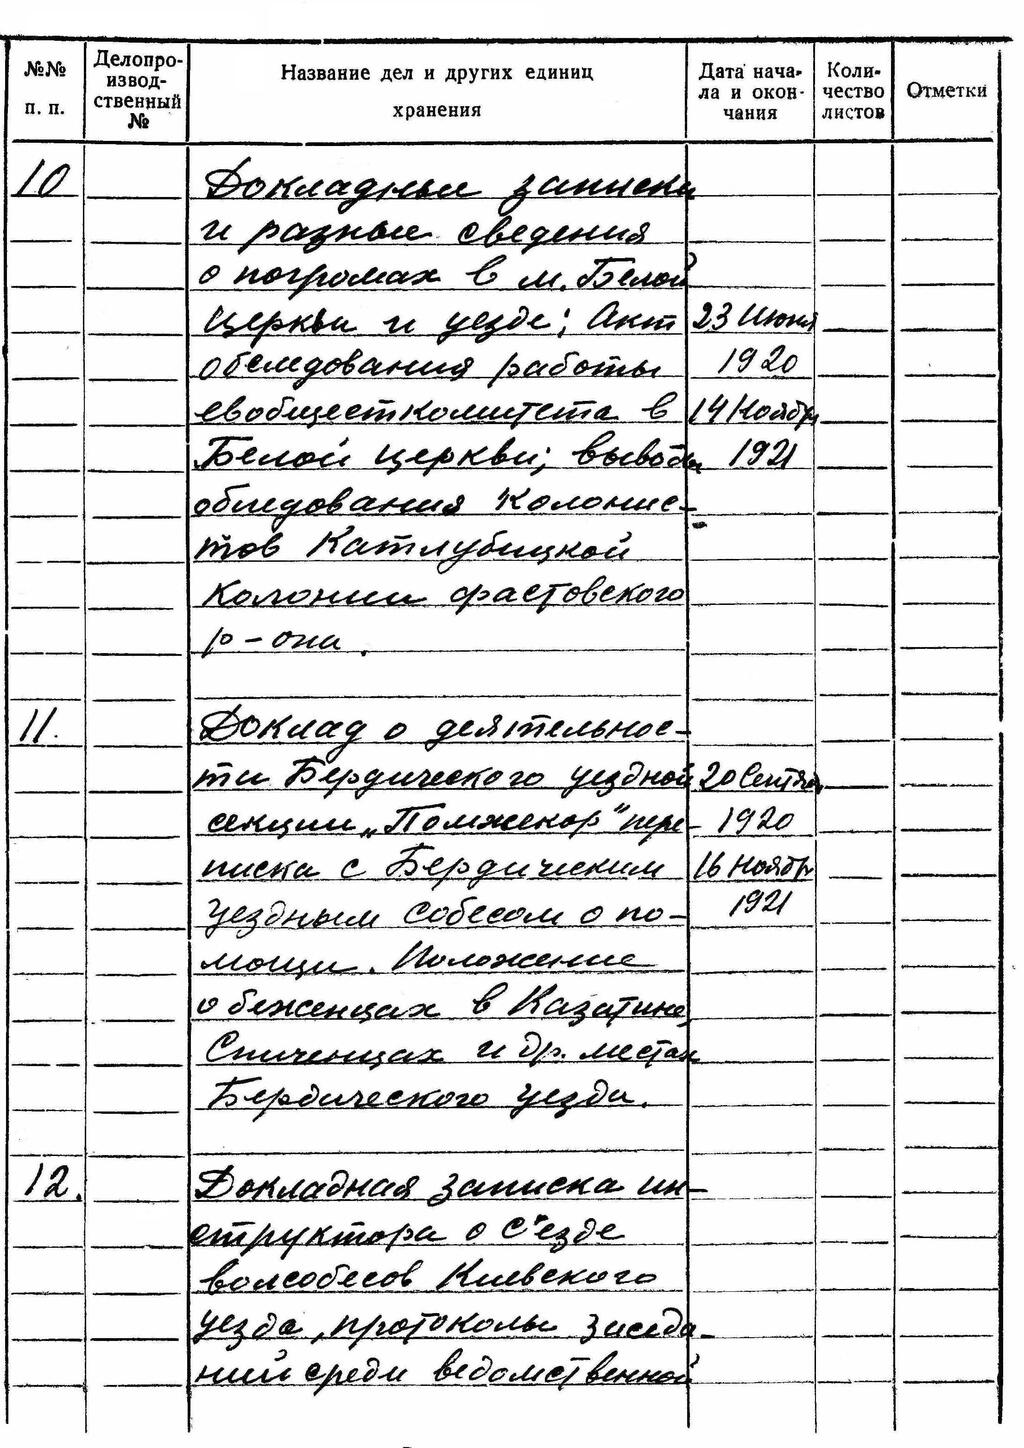 №№ п. п.
Делопроизводственный №
Название дел и других единиц хранения
Дата начала и окончания
Количество листов
Отметки
10 Докладные записки
и разные сведения
о погромах в м. Белой
Церкви и уезде; Акт 23 Июня
обследования работы 1920
евобщесткомитета в 14 Ноября
Белой Церкви; выводы 1921
обследования Колонис-
тов Катлубицкой
Колонии фастовского
р-она.
11. Доклад о деятельнос-
ти Бердического уездной 20 Сентяб
секции „Помжекор" пере- 1920
писка с Бердическим 16 Ноябр
Уездным собесом о по- 1921
мощи. Положение
о беженцах в Казатине,
Спиченцах и др. местах
Бердического уезда.
12. Докладная записка ин-
структора о с"езде
волсобесов Киевского
уезда, протоколы заседа-
ний среди ведомственной